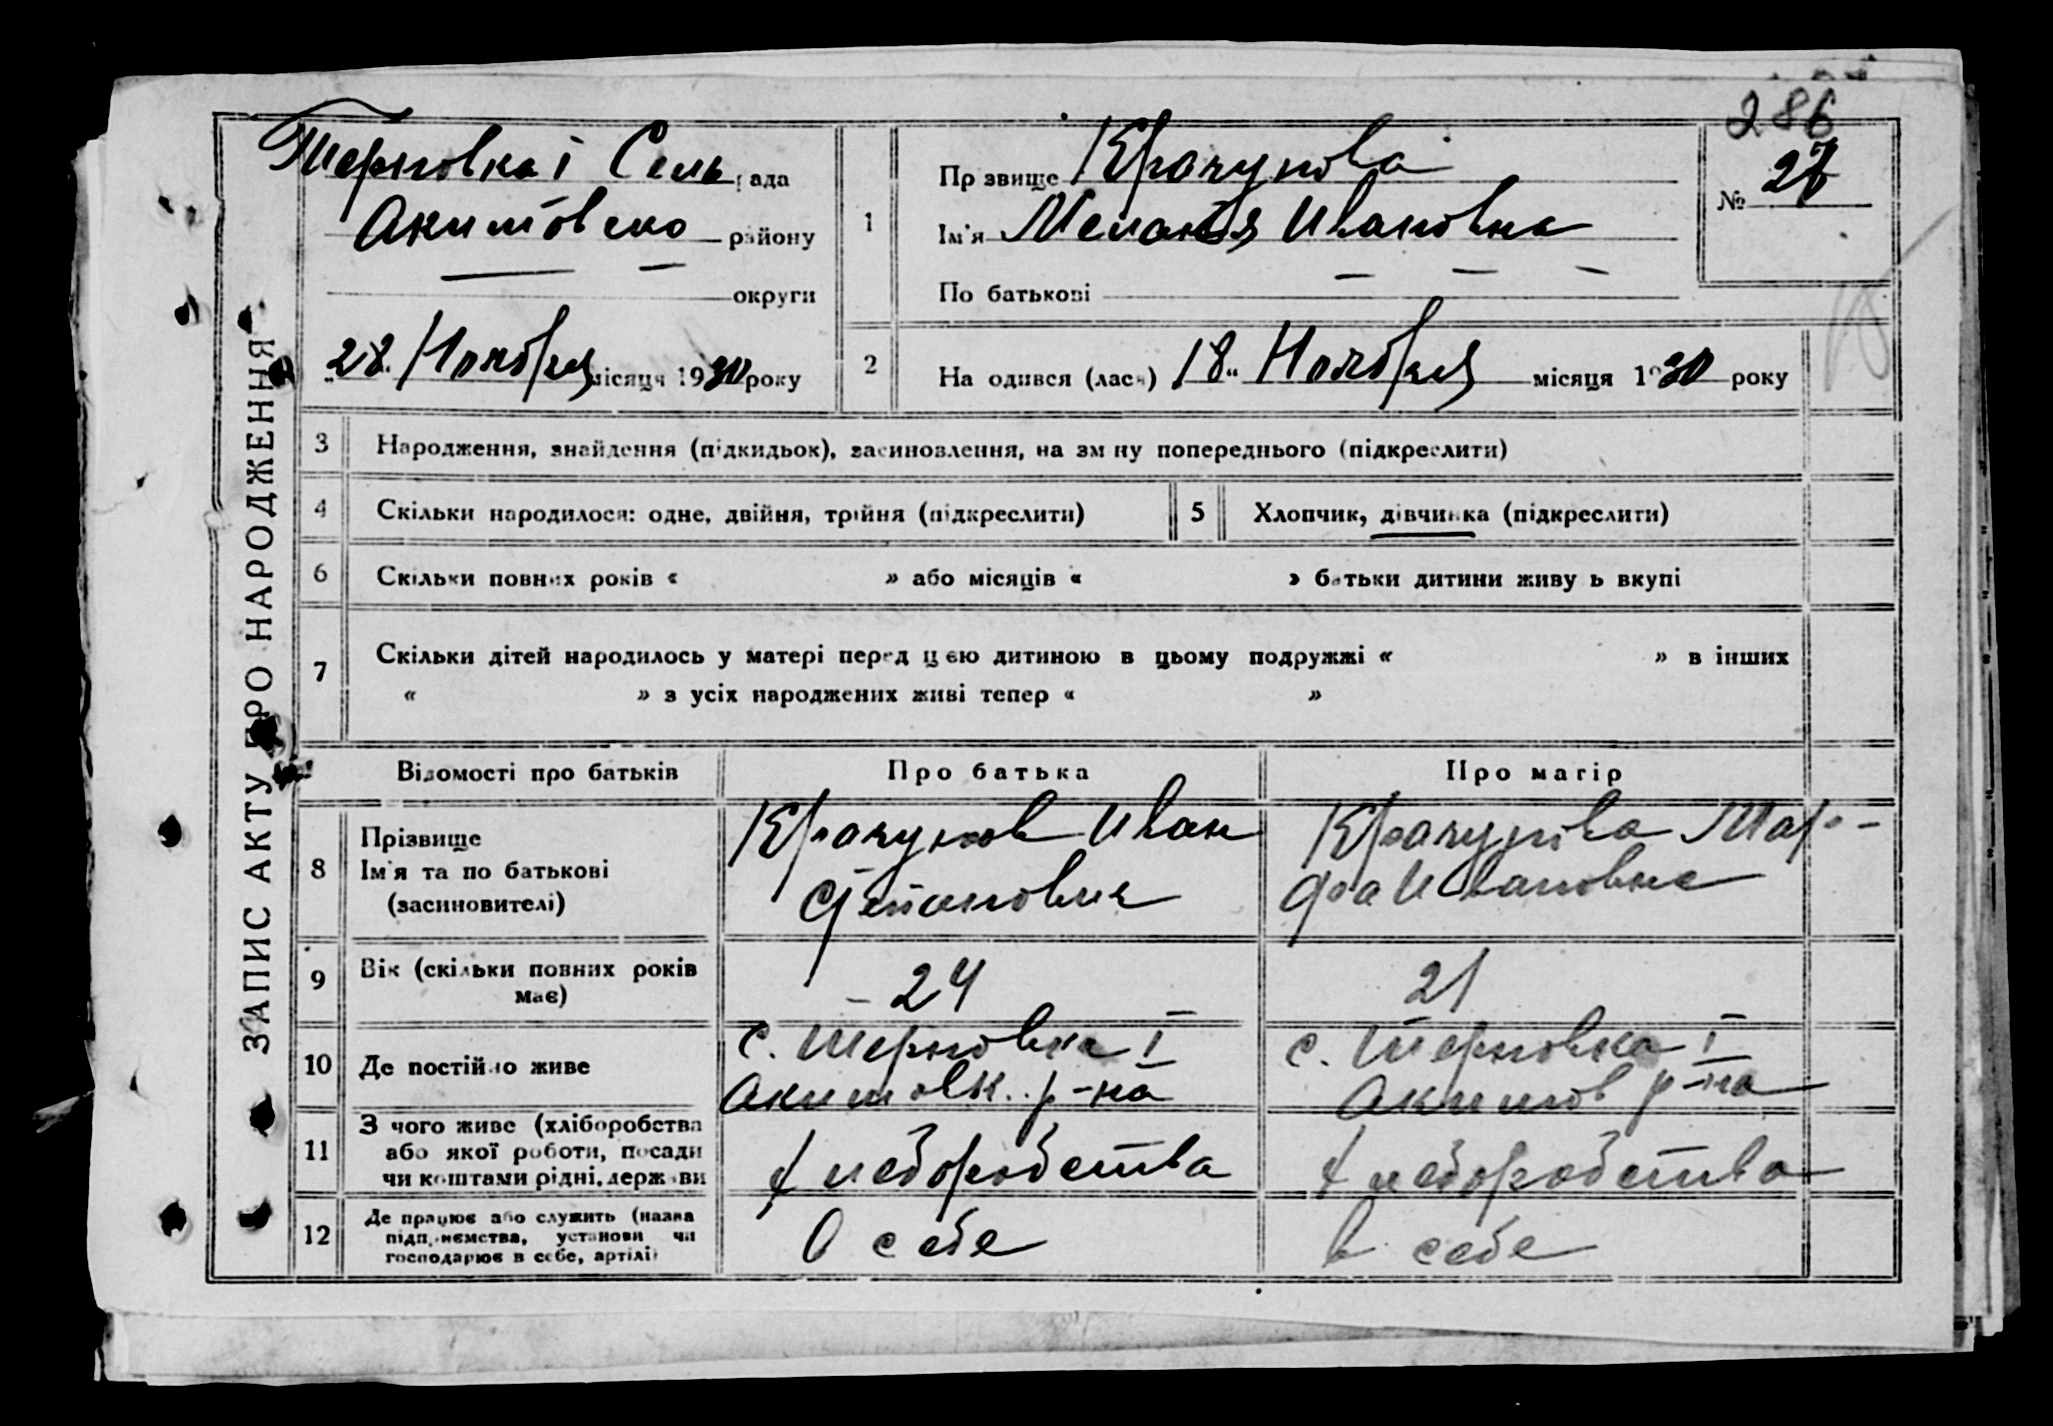 286
Терновка І Сельрада
Акимовско району
округи
„28" Ноября місяця 1930 року
1
Прізвище Крачунова
Ім'я Меланя Ивановна
По батькові
№ 27
2
Народився (лася) „18" Ноября місяця 1930 року
ЗАПИС АКТУ ПРО НАРОДЖЕННЯ
3 Народження, знайдення (підкидьок), засиновлення, на зміну попереднього (підкреслити)
4 Скільки народилося: одне, двійня, трійня (підкреслити)
5 Хлопчик, дівчинка (підкреслити)
6 Скільки повних років « » або місяців « » батьки дитини живуть вкупі
7 Скільки дітей народилось у матері перед цією дитиною в цьому подружжі « » в інших
« » з усіх народжених живі тепер « »
Відомості про батьків
Про батька
Про матір
8
Прізвище
Ім'я та по батькові
(засиновителі)
Крачунов Иван
Степанович
Крачунова Мар-
фа Ивановна
9
Вік (скільки повних років
має)
24
21
10 Де постійно живе
с. Терновка І
Акимовск. р-на
с. Терновка І
Акимов р-на
11
З чого живе (хліборобства
або якої роботи, посади
чи коштами рідні, держави
хлеборобства
хлеборобства
12
Де працює або служить (назва
підприємства, установи чи
господарює в себе, артілі)
в себе
в себе